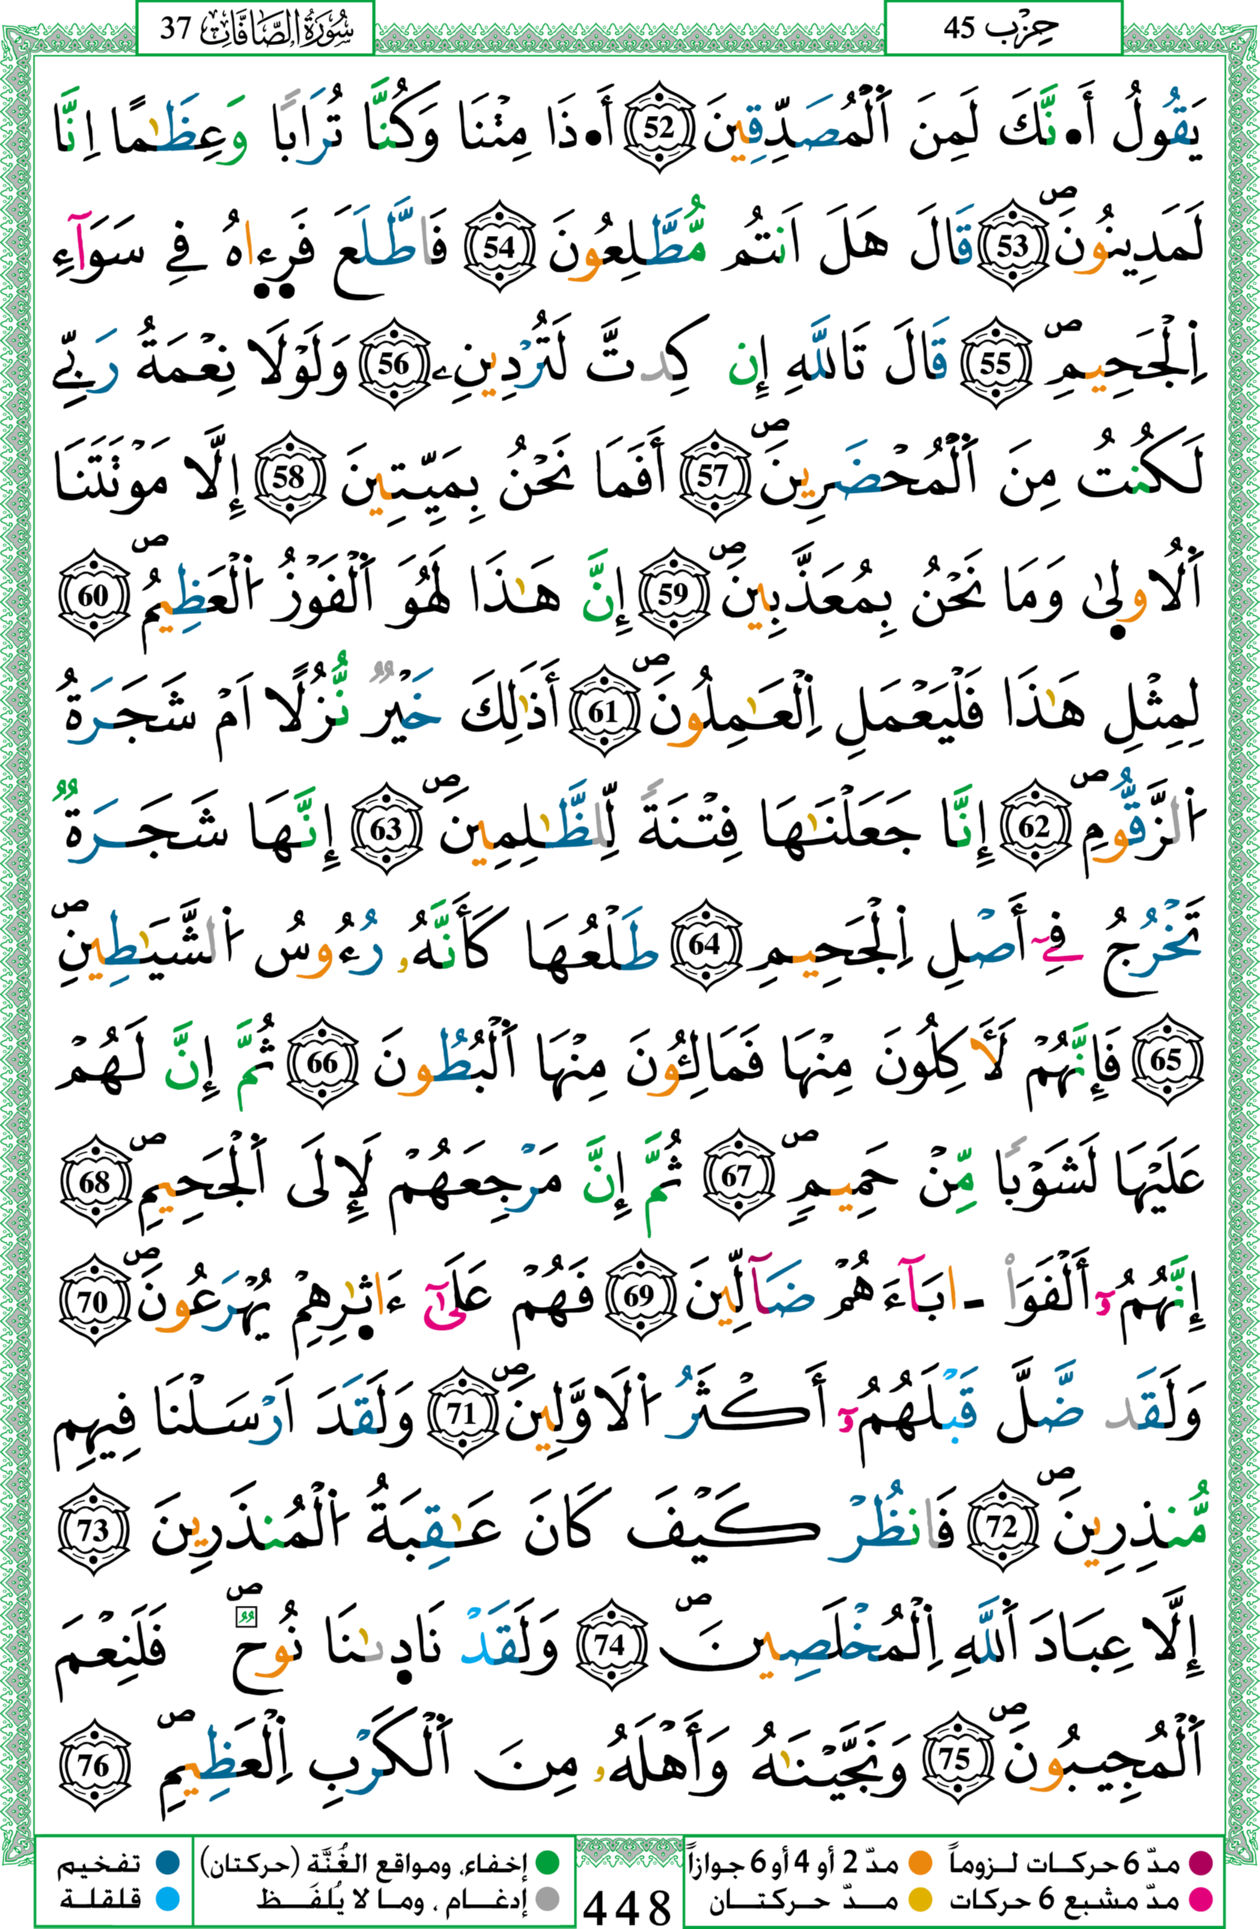 سُورَةُ الصَّافَّاتِ 37
حِزْب 45
يَقُولُ أَ•نَّكَ لَمِنَ اَ۬لْمُصَدِّقِينَ 52 أَ•ذَا مِتْنَا وَكُنَّا تُرَاباٗ وَعِظَٰماً اِنَّا
لَمَدِينُونَۖ 53 قَالَ هَلَ اَنتُم مُّطَّلِعُونَ 54 فَاطَّلَعَ فَرِءاهُ فِے سَوَآءِ
اِ۬لْجَحِيمِۖ 55 قَالَ تَاللَّهِ إِن كِدتَّ لَتُرْدِينِۦ 56 وَلَوْلَا نِعْمَةُ رَبِّے
لَكُنتُ مِنَ اَ۬لْمُحْضَرِينَۖ 57 أَفَمَا نَحْنُ بِمَيِّتِينَ 58 إِلَّا مَوْتَتَنَا
اَ۬لُاول۪يٰ وَمَا نَحْنُ بِمُعَذَّبِينَۖ 59 إِنَّ هَٰذَا لَهُوَ اَ۬لْفَوْزُ اُ۬لْعَظِيمُۖ 60
لِمِثْلِ هَٰذَا فَلْيَعْمَلِ اِ۬لْعَٰمِلُونَۖ 61 أَذَٰلِكَ خَيْرٞ نُّزُلاً اَمْ شَجَرَةُ
اُ۬لزَّقُّومِۖ 62 إِنَّا جَعَلْنَٰهَا فِتْنَةٗ لِّلظَّٰلِمِينَۖ 63 إِنَّهَا شَجَرَةٞ
تَخْرُجُ فِےٓ أَصْلِ اِ۬لْجَحِيمِ 64 طَلْعُهَا كَأَنَّهُۥ رُءُوسُ اُ۬لشَّيَٰطِينِۖ
65 فَإِنَّهُمْ لَأَكِلُونَ مِنْهَا فَمَالِـُٔونَ مِنْهَا اَ۬لْبُطُونَ 66 ثُمَّ إِنَّ لَهُمْ
عَلَيْهَا لَشَوْباٗ مِّنْ حَمِيمٖۖ 67 ثُمَّ إِنَّ مَرْجِعَهُمْ لَإِلَى اَ۬لْجَحِيمِۖ 68
إِنَّهُمُۥٓ أَلْفَوَاْ -ابَآءَهُمْ ضَآلِّينَ 69 فَهُمْ عَلَيٰٓ ءَاثٰ۪رِهِمْ يُهْرَعُونَۖ 70
وَلَقَد ضَّلَّ قَبْلَهُمُۥٓ أَكْثَرُ اُ۬لَاوَّلِينَۖ 71 وَلَقَدَ اَرْسَلْنَا فِيهِم
مُّنذِرِينَۖ 72 فَانظُرْ كَيْفَ كَانَ عَٰقِبَةُ اُ۬لْمُنذَرِينَ 73
إِلَّا عِبَادَ اَ۬للَّهِ اِ۬لْمُخْلَصِينَۖ 74 وَلَقَدْ نَاد۪يٰنَا نُوحٞۖ فَلَنِعْمَ
اَ۬لْمُجِيبُونَۖ 75 وَنَجَّيْنَٰهُ وَأَهْلَهُۥ مِنَ اَ۬لْكَرْبِ اِ۬لْعَظِيمِۖ 76
مدّ 6 حركات لـزوماً ● مدّ 2 أو 4 أو 6 جوازاً ● إخفاء، ومواقع الغُنَّة (حركتان) ● تفخيم
مدّ مشبع 6 حركات ● مـدّ حـركتــان ● إدغـام ، ومـا لا يُلفَـظ ● قلقلة
448